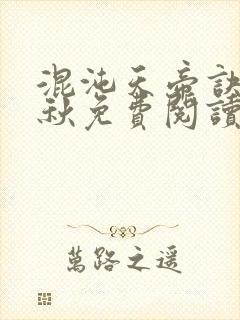 混沌天帝訣
秋免費閱讀
萬路之遥